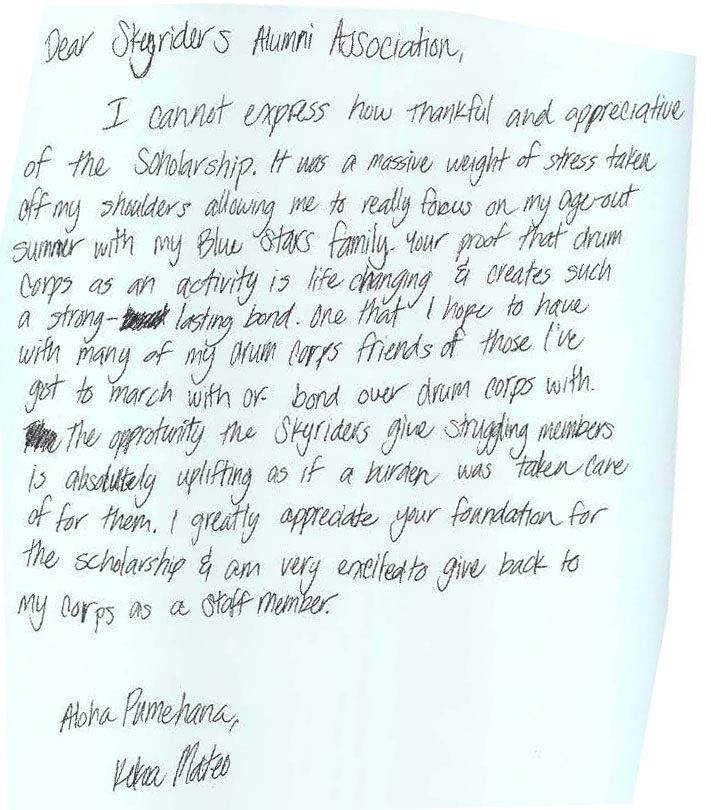 Dear Skyriders Alumni Association,
I cannot express how thankful and appreciative
of the Scholarship. It was a massive weight of stress taken
off my shoulders allowing me to really focus on my age-out
summer with my Blue Stars family. Your proof that drum
corps as an activity is life changing & creates such
a strong- lasting bond. One that I hope to have
with many of my drum corps friends of those I've
got to march with or bond over drum corps with.
The opprotunity the Skyriders give struggling members
is absolutely uplifting as if a burden was taken care
of for them. I greatly appreciate your foundation for
the scholarship & am very excited to give back to
my corps as a staff member.
Aloha Pumehana,
Kekoa Mateo